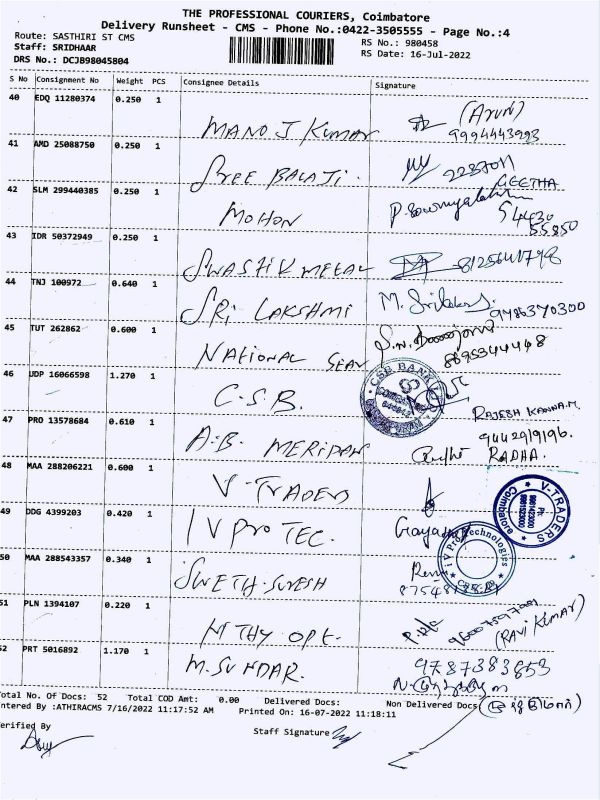 THE PROFESSIONAL COURIERS, Coimbatore
Delivery Runsheet - CMS - Phone No.:0422-3505555 - Page No.:4
Route: SASTHIRI ST CMS
RS No.: 980458
Staff: SRIDHAAR
RS Date: 16-Jul-2022
DRS No.: DCJB98045804
S No Consignment No Weight PCS Consignee Details Signature
40 EDQ 11280374 0.250 1
MANOJ KUMAR (Arun)
9994443993
41 AMD 25088750 0.250 1
SREE BALAJI.
GEETHA
42 SLM 299440385 0.250 1
MOHON
54430
55850
43 IDR 50372949 0.250 1
SWASTIK METAL
44 TNJ 100972 0.640 1
SRI LAKSHMI M.
9486370300
45 TUT 262862 0.600 1
NATIONAL
8895344448
46 UDP 16066598 1.270 1
C.S.B. CSB BANK
RAJESH KANNA.M.
47 PRO 13578684 0.610 1
A.B. MERIDAN
9442919196.
RADHA.
48 MAA 288206221 0.600 1
V-TRADERS
V-TRADERS Coimbatore
49 DDG 4399203 0.420 1
I V PRO TEC. Gayathri
i V Pro Technologies
50 MAA 288543357 0.340 1
SWETH SURESH
51 PLN 1394107 0.220 1
(RAVI KUMAR)
52 PRT 5016892 1.170 1
M. SUNDAR. 9787383853
Total No. Of Docs: 52 Total COD Amt: 0.00 Delivered Docs: Non Delivered Docs
Entered By :ATHIRACMS 7/16/2022 11:17:52 AM Printed On: 16-07-2022 11:18:11
Verified By Staff Signature